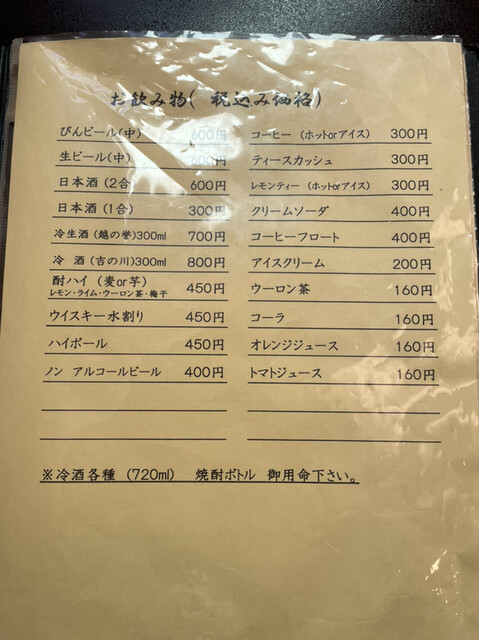 お飲み物( 税込み価格)
びんビール(中) 600円
生ビール(中) 600円
日本酒 (2合) 600円
日本酒 (1合) 300円
冷生酒 (越の誉)300ml 700円
冷 酒 (吉の川)300ml 800円
酎ハイ (麦or芋) 450円
レモン・ライム・ウーロン茶・梅干
ウイスキー水割り 450円
ハイボール 450円
ノン アルコールビール 400円
コーヒー (ホットorアイス) 300円
ティースカッシュ 300円
レモンティー (ホットorアイス) 300円
クリームソーダ 400円
コーヒーフロート 400円
アイスクリーム 200円
ウーロン茶 160円
コーラ 160円
オレンジジュース 160円
トマトジュース 160円
※冷酒各種 (720ml) 焼酎ボトル 御用命下さい。